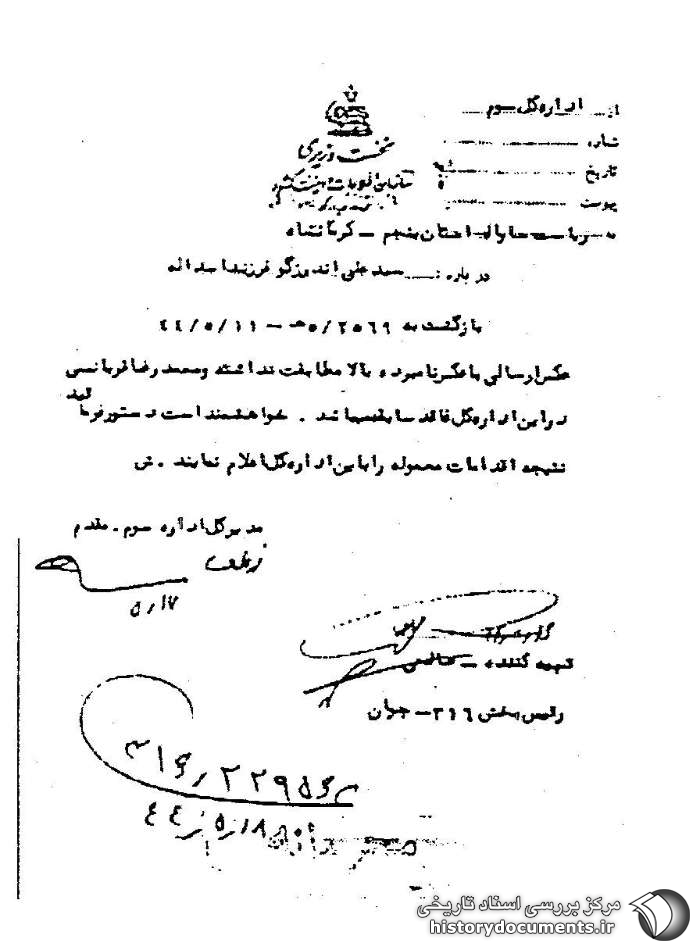 از اداره کل سوم
شماره
تاریخ
پیوست
نخست وزیری
سازمان اطلاعات و امنیت کشور
به ریاست ساواک استان پنجم - کرمانشاه
درباره : سید علی اندرزگو فرزند اسداله
بازگشت به ۲۵۶۹/ ۵ه - ۴۴/۵/۱۱
عکس ارسالی با عکس نامبرده بالا مطابقت نداشته و سعید رضا قربانسی
در این اداره کل فاقد سابقه میباشد . خواهشمند است دستور فرمایند
نتیجه اقدامات معموله را باین اداره کل اعلام نمایند . ش
مدیر کل اداره سوم . مقدم
۵/۱۷
تهیه کننده - صالحی
رئیس بخش ۳۱۶ - جوان
۳۱۶/۲۲۹۵۶
۴۴/۵/۱۸
مرکز بررسی اسناد تاریخی
historydocuments.ir